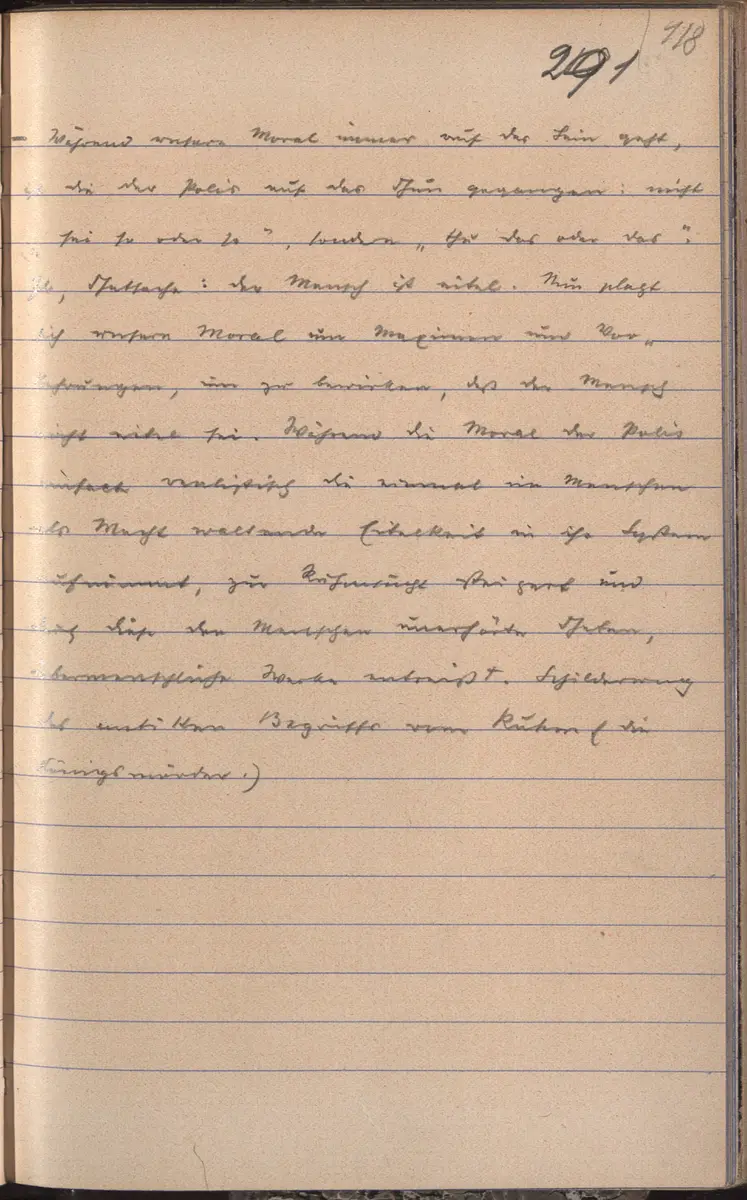 118
291
– Während unsere Moral immer auf das Sein geht,
die der Polis auf das Thun gegangen: nicht
sei so oder so", sondern „thu das oder das".
Thatsache: der Mensch ist eitel. Nun plagt
sich unsere Moral um Maximen und Vor„
kehrungen, um zu bewirken, daß der Mensch
nicht eitel sei. Während die Moral der Polis
einfach realistisch die einmal im Menschen
als Macht waltende Eitelkeit in ihr System
aufnimmt, zur Ruhmsucht steigert und
durch diese den Menschen unerhörte Thaten,
übermenschliche Werke entreißt. Schilderung
des antiken Begriffs vom Ruhm (die
Königsmörder.)